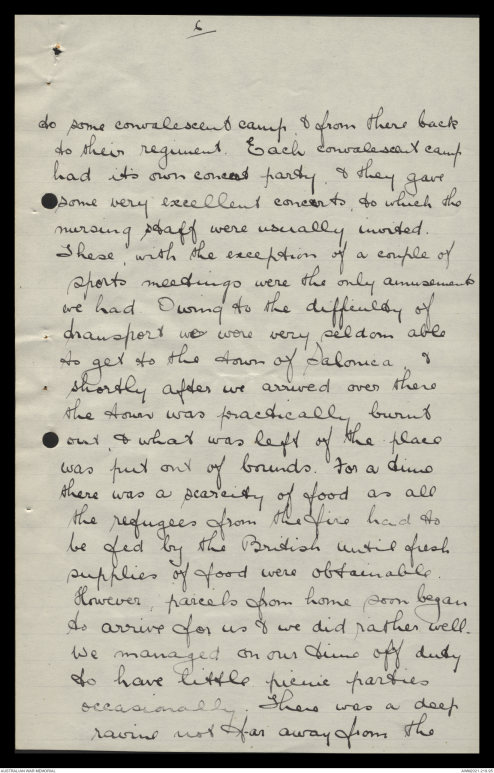 6
to some convalescent camp, & from there back
to their regiment. Each convalescent camp
had its own concert party, & they gave
some very excellent concerts, to which the
nursing staff were usually invited.
These, with the exception of a couple of
sports meetings were the only amusements
we had. Owing to the difficulty of
transport we were very seldom able
to get to the town of Salonica, &
shortly after we arrived over there
the town was practically burnt
out, & what was left of the place
was put out of bounds. For a time
there was a scarcity of food as all
the refugees from the fire had to
be fed by the British until fresh
supplies of food were obtainable.
However, parcels from home soon began
to arrive for us & we did rather well.
We managed on our time off duty
to have little picnic parties
occasionally. There was a deep
ravine not far away from the
AUSTRALIAN WAR MEMORIAL